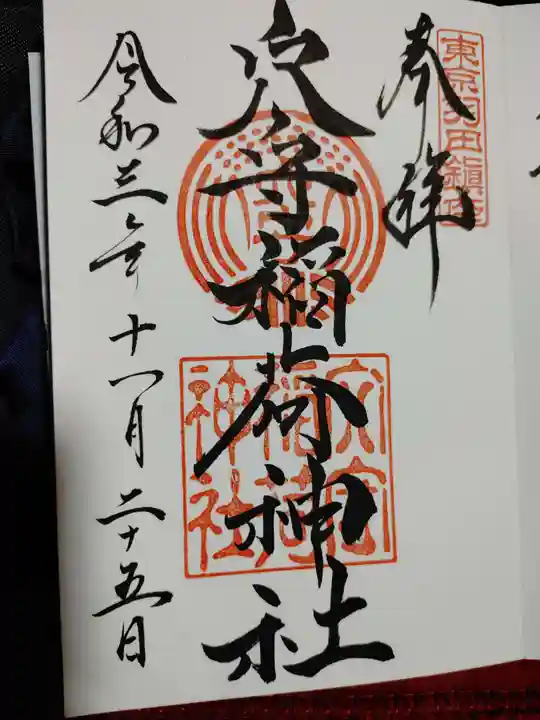 東京羽田鎮座
奉拝
穴守稲荷神社
穴守
稲荷
神社
令和三年十一月二十五日